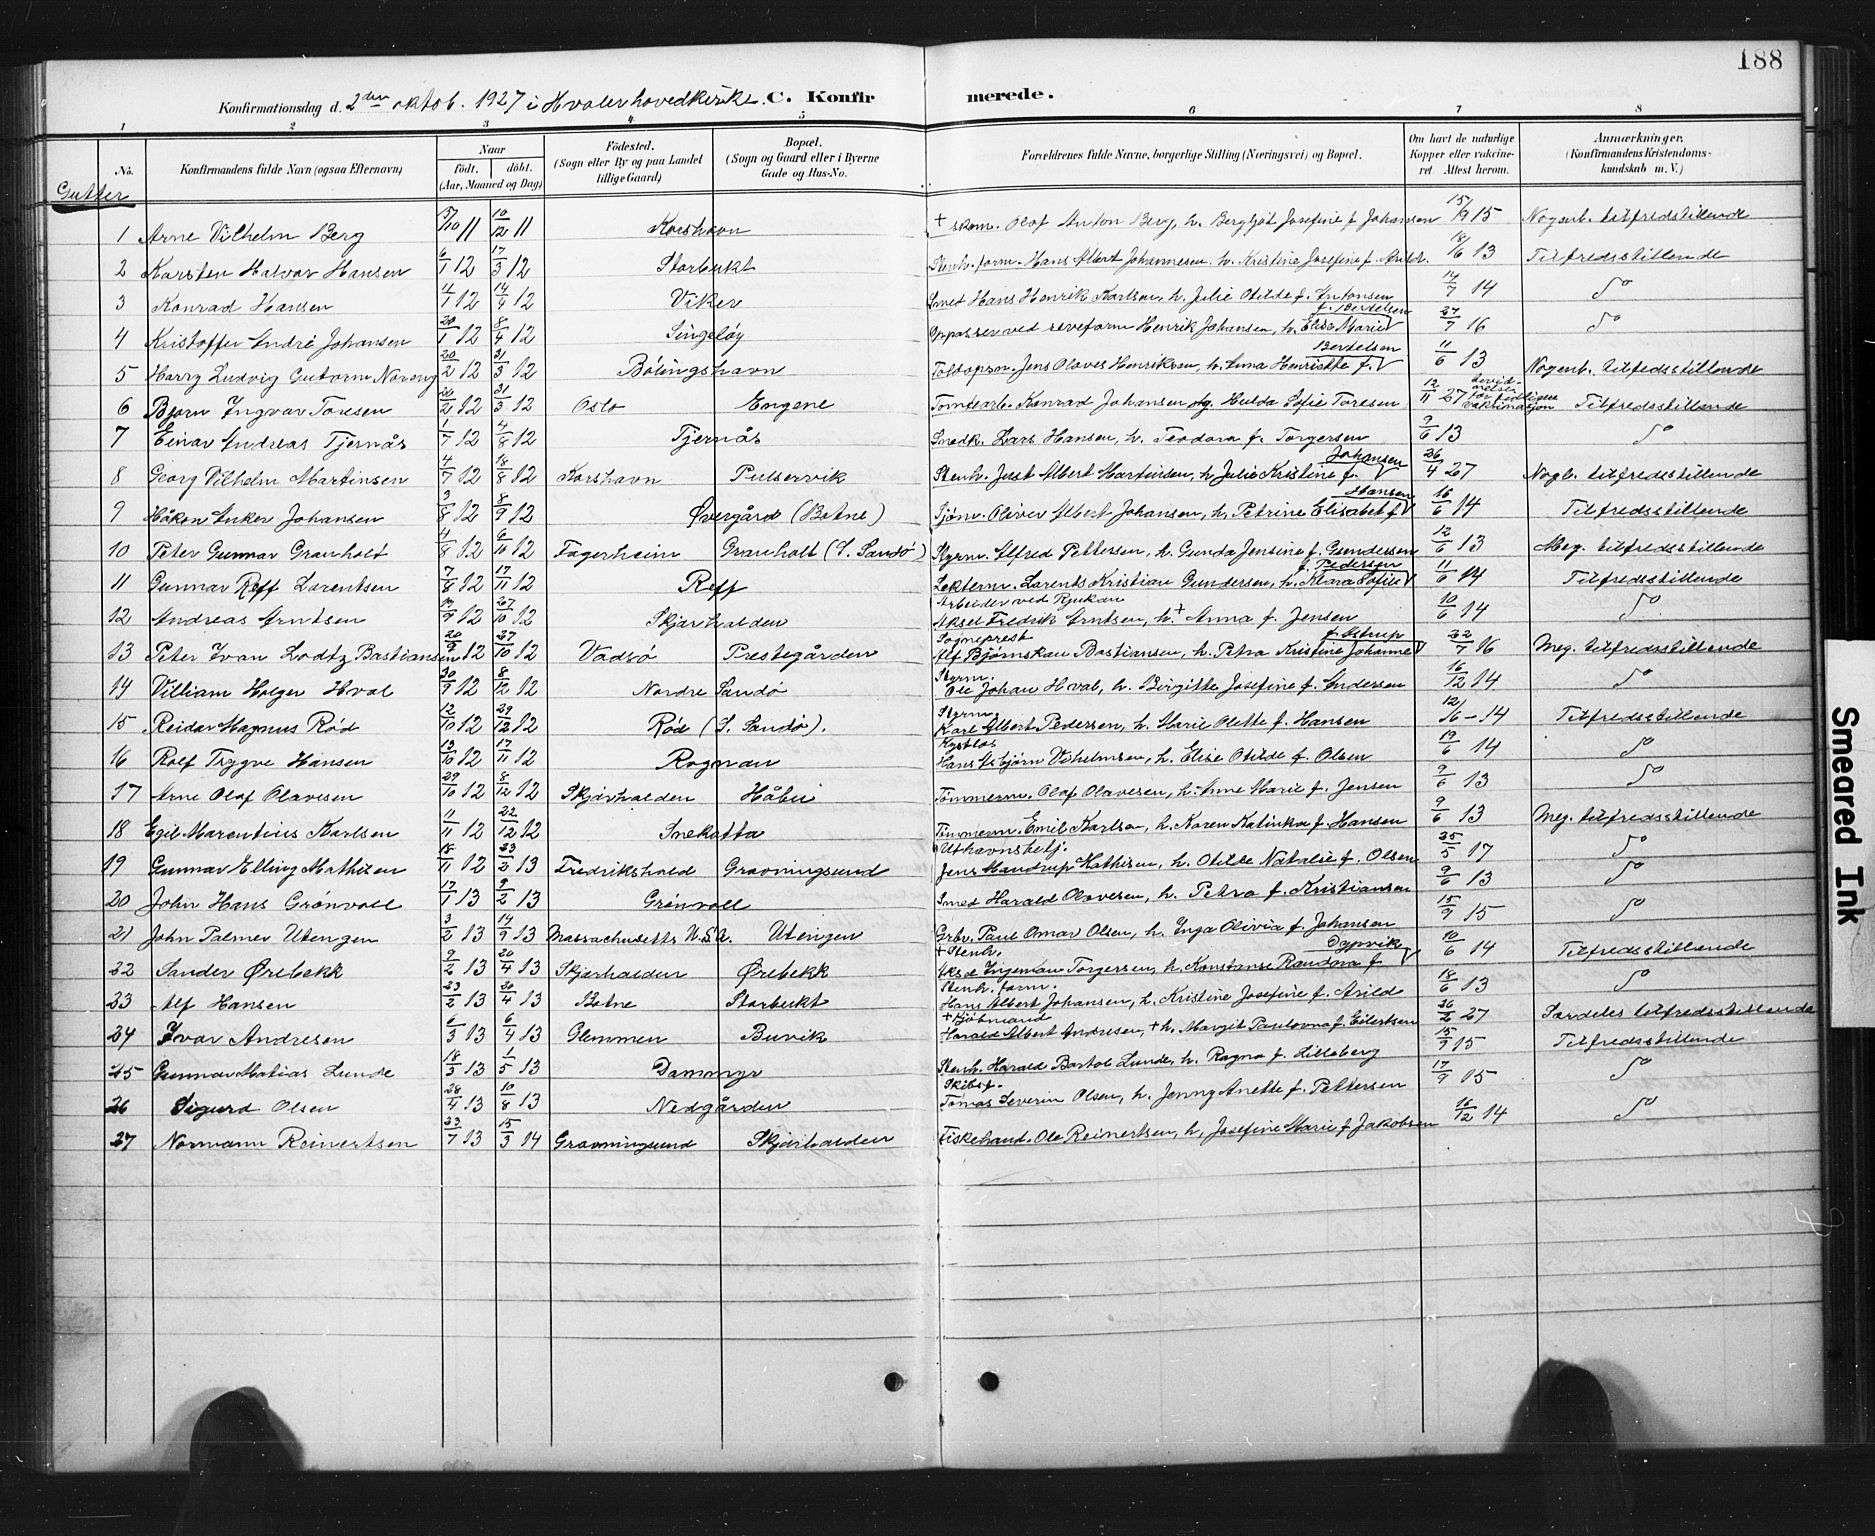 188
Konfirmationsdag d. 2den oktob. 1927 i Hvaler hovedkirke. C. Konfirmerede.
1 2 3 4 5 6 7 8
No. Konfirmandens fulde Navn (ogsaa Efternavn) Naar født. døbt. (Aar, Maaned og Dag) Fødested. (Sogn eller By og paa Landet tillige Gaard) Bopæl. (Sogn og Gaard eller i Byerne Gade og Hus-No. Forældrenes fulde Navne, borgerlige Stilling (Næringsvei) og Bopæl. Om havt de naturlige Kopper eller vakcineret Attest herom. Anmærkninger. (Konfirmandens Kristendomskundskab m. V.)
Gutter
1 Arne Vilhelm Berg 5/10 11 10/12 11 Korshavn + skom. Olaf Anton Berg, h. Bergljot Josefine f. Johansen 15/9 15 Nogenl. tilfredsstillende
2 Karsten Halvar Hansen 6/1 12 17/3 12 Storbukt Stenh. form. Hans Albert Johannesen, h. Kristine Josefine f. Arild. 18/6 13 Tilfredsstillende
3 Konrad Hansen 11/1 12 14/4 12 Viker Smed Hans Henrik Karlsen, h. Julie Otilde f. Antonsen 14/7 14 do
4 Kristoffer André Johansen 20/1 12 8/4 12 Singeløy Oppasser ved revefarm Henrik Johansen, h. Elise Marie f. Bertelsen 27/7 16 do
5 Harry Ludvig Gutorm Noreng 20/2 12 31/3 12 Bølingshavn Toldopsn. Jens Olaves Henriksen, h. Anna Henriette f. Bertelsen 11/6 13 Nogenl. tilfredsstillende
6 Bjørn Ingvar Toresen 20/2 12 31/3 12 Oslo Engene Tomtearb. Konrad Johansen og Hulda Sofie Toresen 12/11 27 bevidnelse for tidligere vaksinasjon Tilfredsstillende
7 Einar Andreas Tjernås 1/7 12 4/8 12 Tjernås Snedk. Lars Hansen, h. Teodora f. Torgersen 9/6 13 do
8 Georg Vilhelm Martinsen 4/7 12 18/8 12 Korshavn Pulservik Stenh. Just Albert Martinsen, h. Julie Kristine f. Johansen 26/4 27 Nogl. tilfredsstillende
9 Håkon Anker Johansen 3/8 12 8/9 12 Øvergård (Botne) Sjøm. Oliver Albert Johansen, h. Petrine Elisabet f. Hansen 16/6 14 Tilfredsstillende
10 Peter Gunnar Granholt 4/8 12 6/10 12 Fagerheim Granholt (S. Sandø) Styrm. Alfred Pettersen, h. Gunda Jensine f. Gundersen 12/6 13 Meg. tilfredsstillende
11 Gunnar Reff Larentsen 7/8 12 17/11 12 Reff Lekterm. Larents Kristian Gundersen, h. Klara Sofie f. Pedersen 11/6 14 Tilfredsstillende
12 Andreas Arntsen 17/9 12 27/10 12 Skjærhalden Arbeider ved Rjukan Aksel Fredrik Arntsen, h. + Anna f. Jensen 10/6 14 do
13 Peter Ivan Lodtz Bastiansen 20/9 12 27/10 12 Vadsö Prestegården Sogneprest Alf Bjørnskau Bastiansen, h. Petra Kristine Johanne f. Astrup 22/7 16 Meg. tilfredsstillende
14 Villiam Holger Hval 30/9 12 8/12 12 Nordre Sandø Styrm. Ole Johan Hval, h. Birgitte Josefine f. Andersen 16/12 14 do
15 Reidar Magnus Rød 12/10 12 29/12 12 Rød (S. Sandø). Styrm. Karl Albert Pedersen, h. Marie Olette f. Hansen 12/6 - 14 Tilfredsstillende
16 Rolf Trygve Hansen 13/10 12 17/11 12 Rognan Kystlos Hans Asbjørn Vilhelmsen, h. Elise Otilde f. Olsen 19/6 14 do
17 Arne Olaf Olavesen 29/10 12 8/12 12 Skjærhalden Håbu Tømmerm. Olaf Olavesen, h. Anne Marie f. Jensen 9/6 13 do
18 Egil Marentius Karlsen 11/11 12 22/12 12 Snekotta Tømmerm. Emil Karlsen, h. Karen Katinka f. Hansen 9/6 13 Meg. tilfredsstillende
19 Gunnar Elling Mathisen 18/11 12 23/2 13 Fredrikshald Gravningsund Uthavnsbetj. Jens Mandrup Mathisen, h. Otilde Natalie f. Olsen 25/5 17 do
20 John Hans Grønvoll 17/1 13 9/2 13 Grønvoll Smed Harald Olavesen, h. Petra f. Kristiansen 9/6 13 do
21 John Palmer Utengen 3/2 13 14/9 13 Massachusetts U.S.A. Utengen Grbr. Paul Omar Olsen, h. Inga Olivia f. Johansen 15/9 15 do
22 Sander Ørebekk 9/2 13 20/4 13 Skjærhalden Ørebekk + Stenh. Aksel Ingeman Torgersen, h. Konstanse Randora f. Dypvik 10/6 14 Tilfredsstillende
23 Alf Hansen 23/2 13 20/4 13 Botne Storbukt Stenh. form. Hans Albert Johansen, h. Kristine Josefine f. Arild 18/6 13 do
24 Ivar Andresen 6/3 13 6/4 13 Glemmen Buvik + Kjøbmand Harald Albert Andresen, + h. Margit Paulovna f. Eilertsen 26/2 27 Særdeles tilfredsstillende
25 Gunnar Matias Lunde 18/3 13 1/5 13 Dammyr Stenh. Harald Bartol Lunde, h. Ragna f. Lilleberg 15/9 15 Tilfredsstillende
26 Sigurd Olsen 28/4 13 10/8 13 Nedgården Skibsf. Tomas Severin Olsen, h. Jenny Anette f. Pettersen 17/9 15 do
27 Normann Reinertsen 23/7 13 15/3 14 Gravningsund Skjærhalden Fiskehand. Ole Reinertsen, h. Josefine Marie f. Jakobsen 16/12 14 do
Smeared Ink